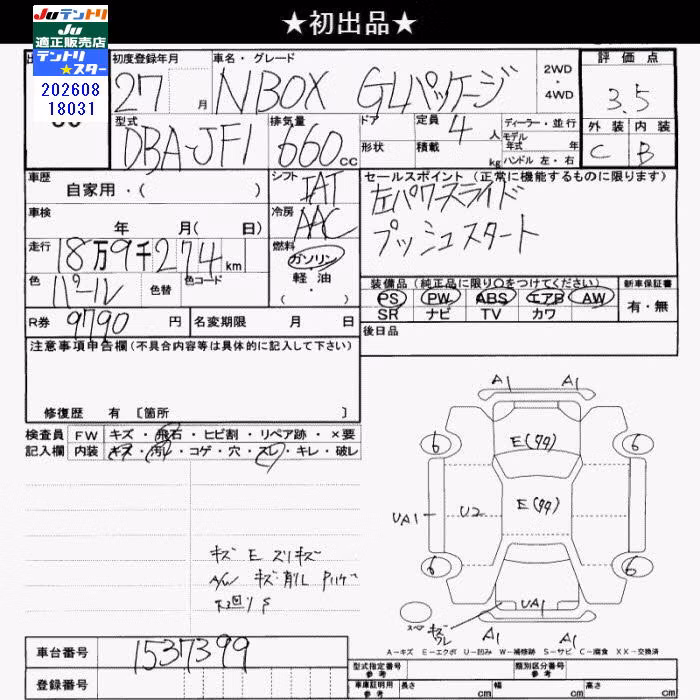 ★初出品★
Juテントリ
Ju
適正販売店
テントリ
★スター
202608
18031
初度登録年月 車名・グレード 2WD・4WD 評価点
27 月 N BOX GLパッケージ 3.5
型式 排気量 ドア 定員 ディーラー・並行 外装 内装
DBA-JF1 660cc 4人 モデル年式 年 C B
形状 積載 kg ハンドル 左・右
車歴 シフト セールスポイント(正常に機能するものに限ります)
自家用・( ) IAT 左パワースライド
車検 冷房 プッシュスタート
年 月( 日) AAC
走行 18万9千274km 燃料 ガソリン
軽油
( ・ )
色 パール 色替 色コード
装備品(純正品に限り○をつけてください) 新車保証書
PS PW ABS エアB AW 有・無
SR ナビ TV カワ
R券 9790円 名変期限 月 日
後日品
注意事項申告欄(不具合内容等は具体的に記入して下さい)
修復歴 有 [箇所 ]
検査員 FW キズ・飛石・ヒビ割・リペア跡・×要
記入欄 内装 キズ・汚レ・コゲ・穴・スレ・キレ・破レ
A1 A1
6 6
E(99)
UA1 U2 E(99)
6 6
UA1
キズ E スリキズ
A/W キズ 削レ
スペア
キズ
ワレ
A1 A1
A-キズ E-エクボ U-凹み W-補修跡 S-サビ C-腐食 XX-交換済
車台番号 1537399
登録番号
型式指定番号 参考 類別区分番号 参考
車庫証明用 参考 長さ cm 幅 cm 高さ cm